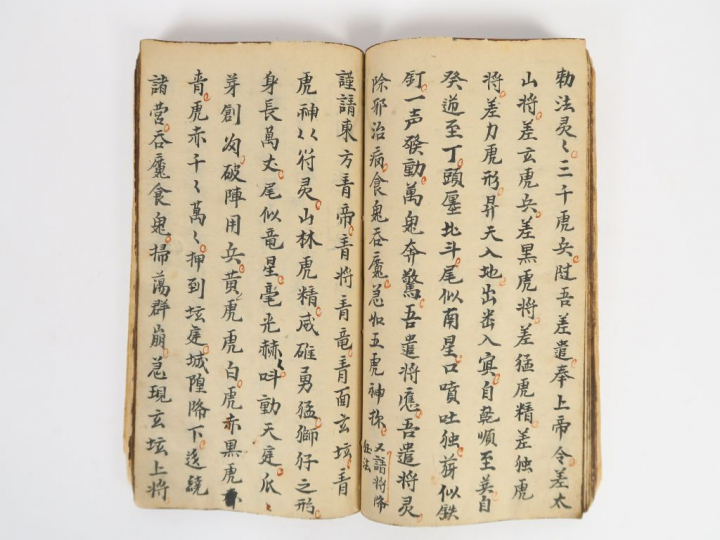 勅法灵〻三千虎兵随吾差遣奉上帝令差太
山将差玄虎兵差黑虎将差猛虎精差独虎
将差力虎形昇天入地出幽入冥自乾順至英自
癸道至丁頭壓北斗尾似南星口噴吐独葥似鉄
釘一声發動萬鬼奔驚吾遣将應吾遣将灵
除邪治病食鬼吞魔急如五虎神
又請将降
謹請東方青帝青将青竜青面玄坛青
虎神〻符灵山林虎精威雄勇猛獅仔之形
身長萬丈尾似竜星毫光赫〻吽動天庭爪〻
芽創匈破陣用兵黄虎虎白虎赤黑虎
青虎赤千〻萬〻押到坛庭城隍降下遶繞
諸营吞魔食鬼掃蕩群崩急現玄坛上将